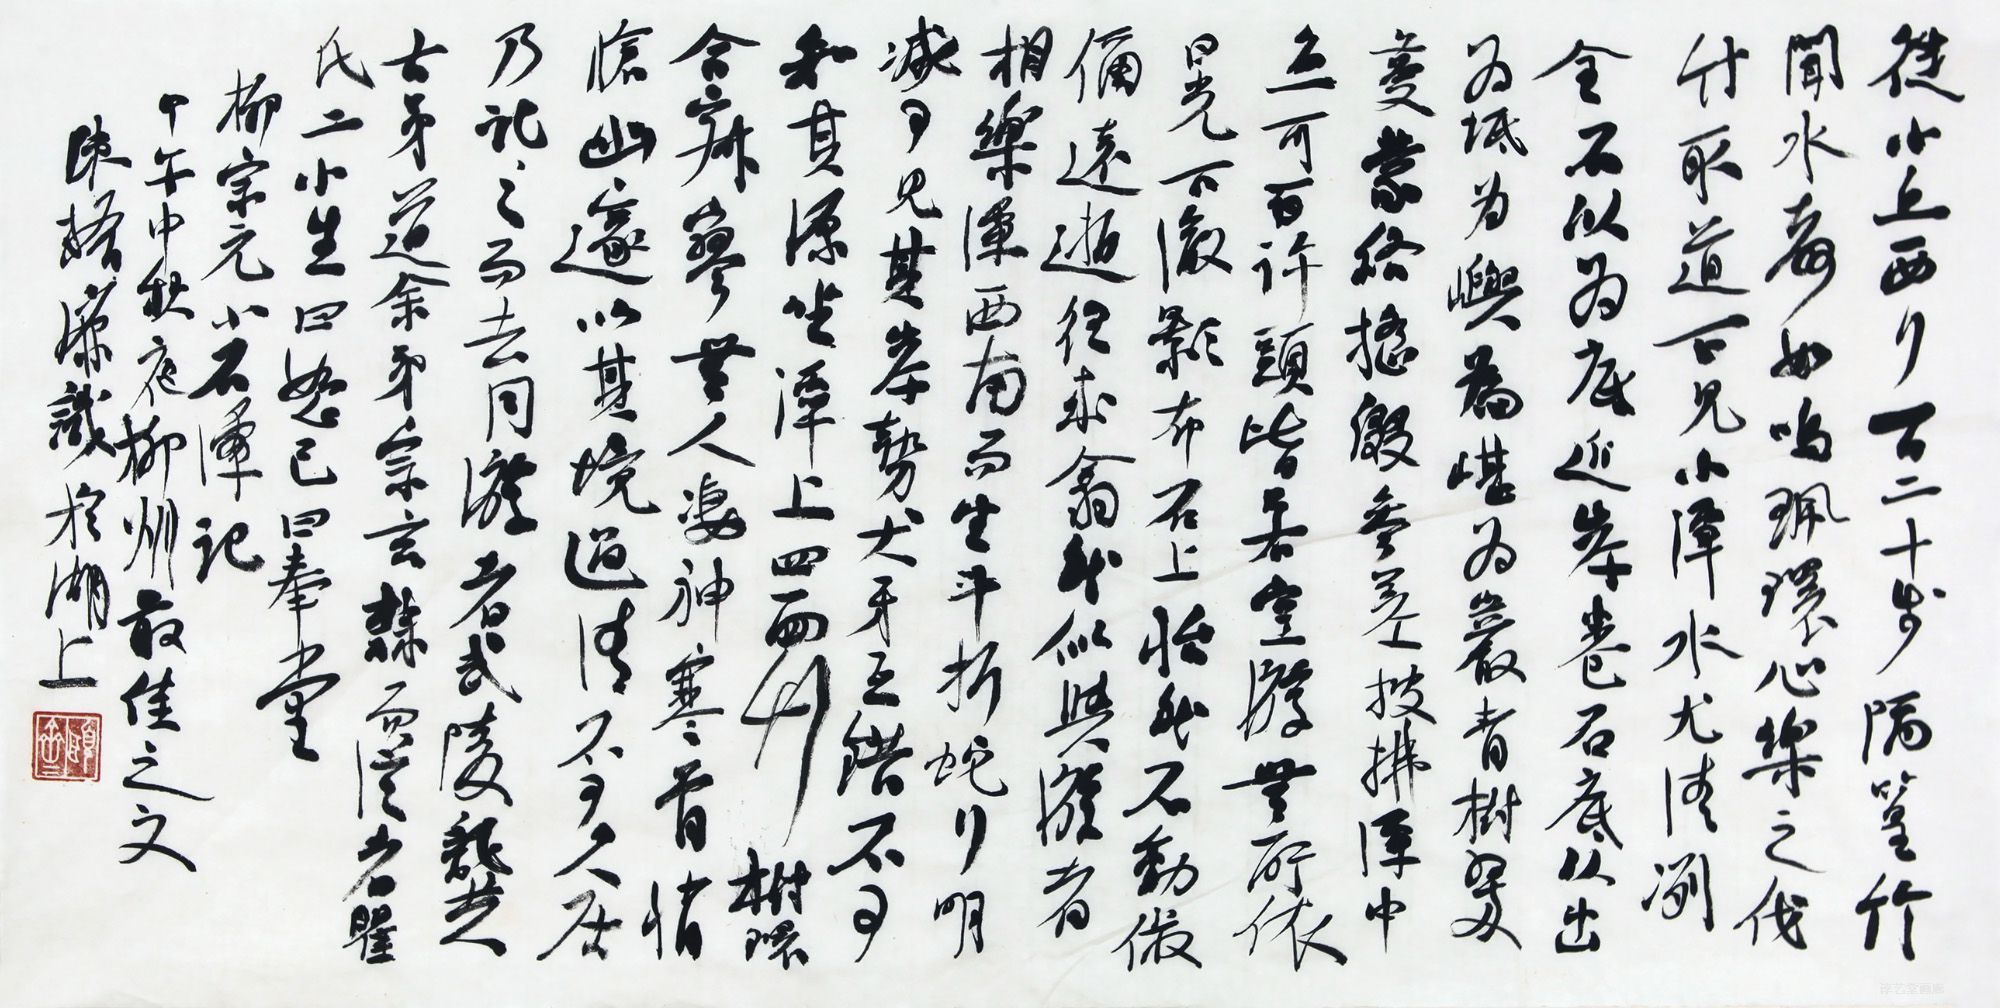 從小丘西行百二十步隔篁竹
聞水聲如鳴珮環心樂之伐
竹取道下見小潭水尤清冽
全石以為底近岸卷石底以出
為坻為嶼為嵁為巖青樹翠
蔓蒙絡搖綴參差披拂潭中
魚可百許頭皆若空游無所依
日光下澈影布石上怡然不動俶
爾遠逝往來翕然似與游者
相樂潭西南而望斗折蛇行明
滅可見其岸勢犬牙互錯不可
知其源坐潭上四面竹樹環
合寂寥無人淒神寒骨悄
愴幽邃以其境過清不可久居
乃記之而去同游者武陵龔
古弟道余弟宗玄隸而從者崔
氏二小生曰恕己曰奉壹
柳宗元小石潭記
甲午中秋夜柳州最佳之文
陳濂識於湖上
谆艺堂画廊